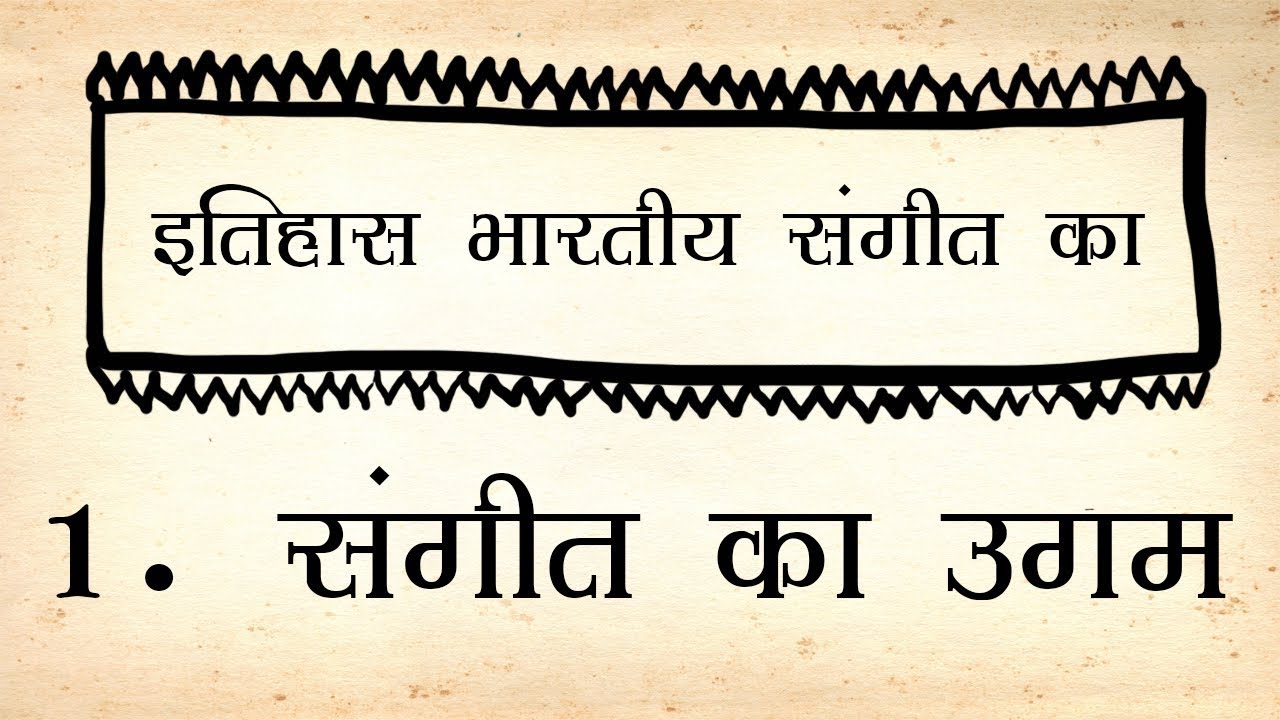 इतिहास भारतीय संगीत का
1. संगीत का उगम